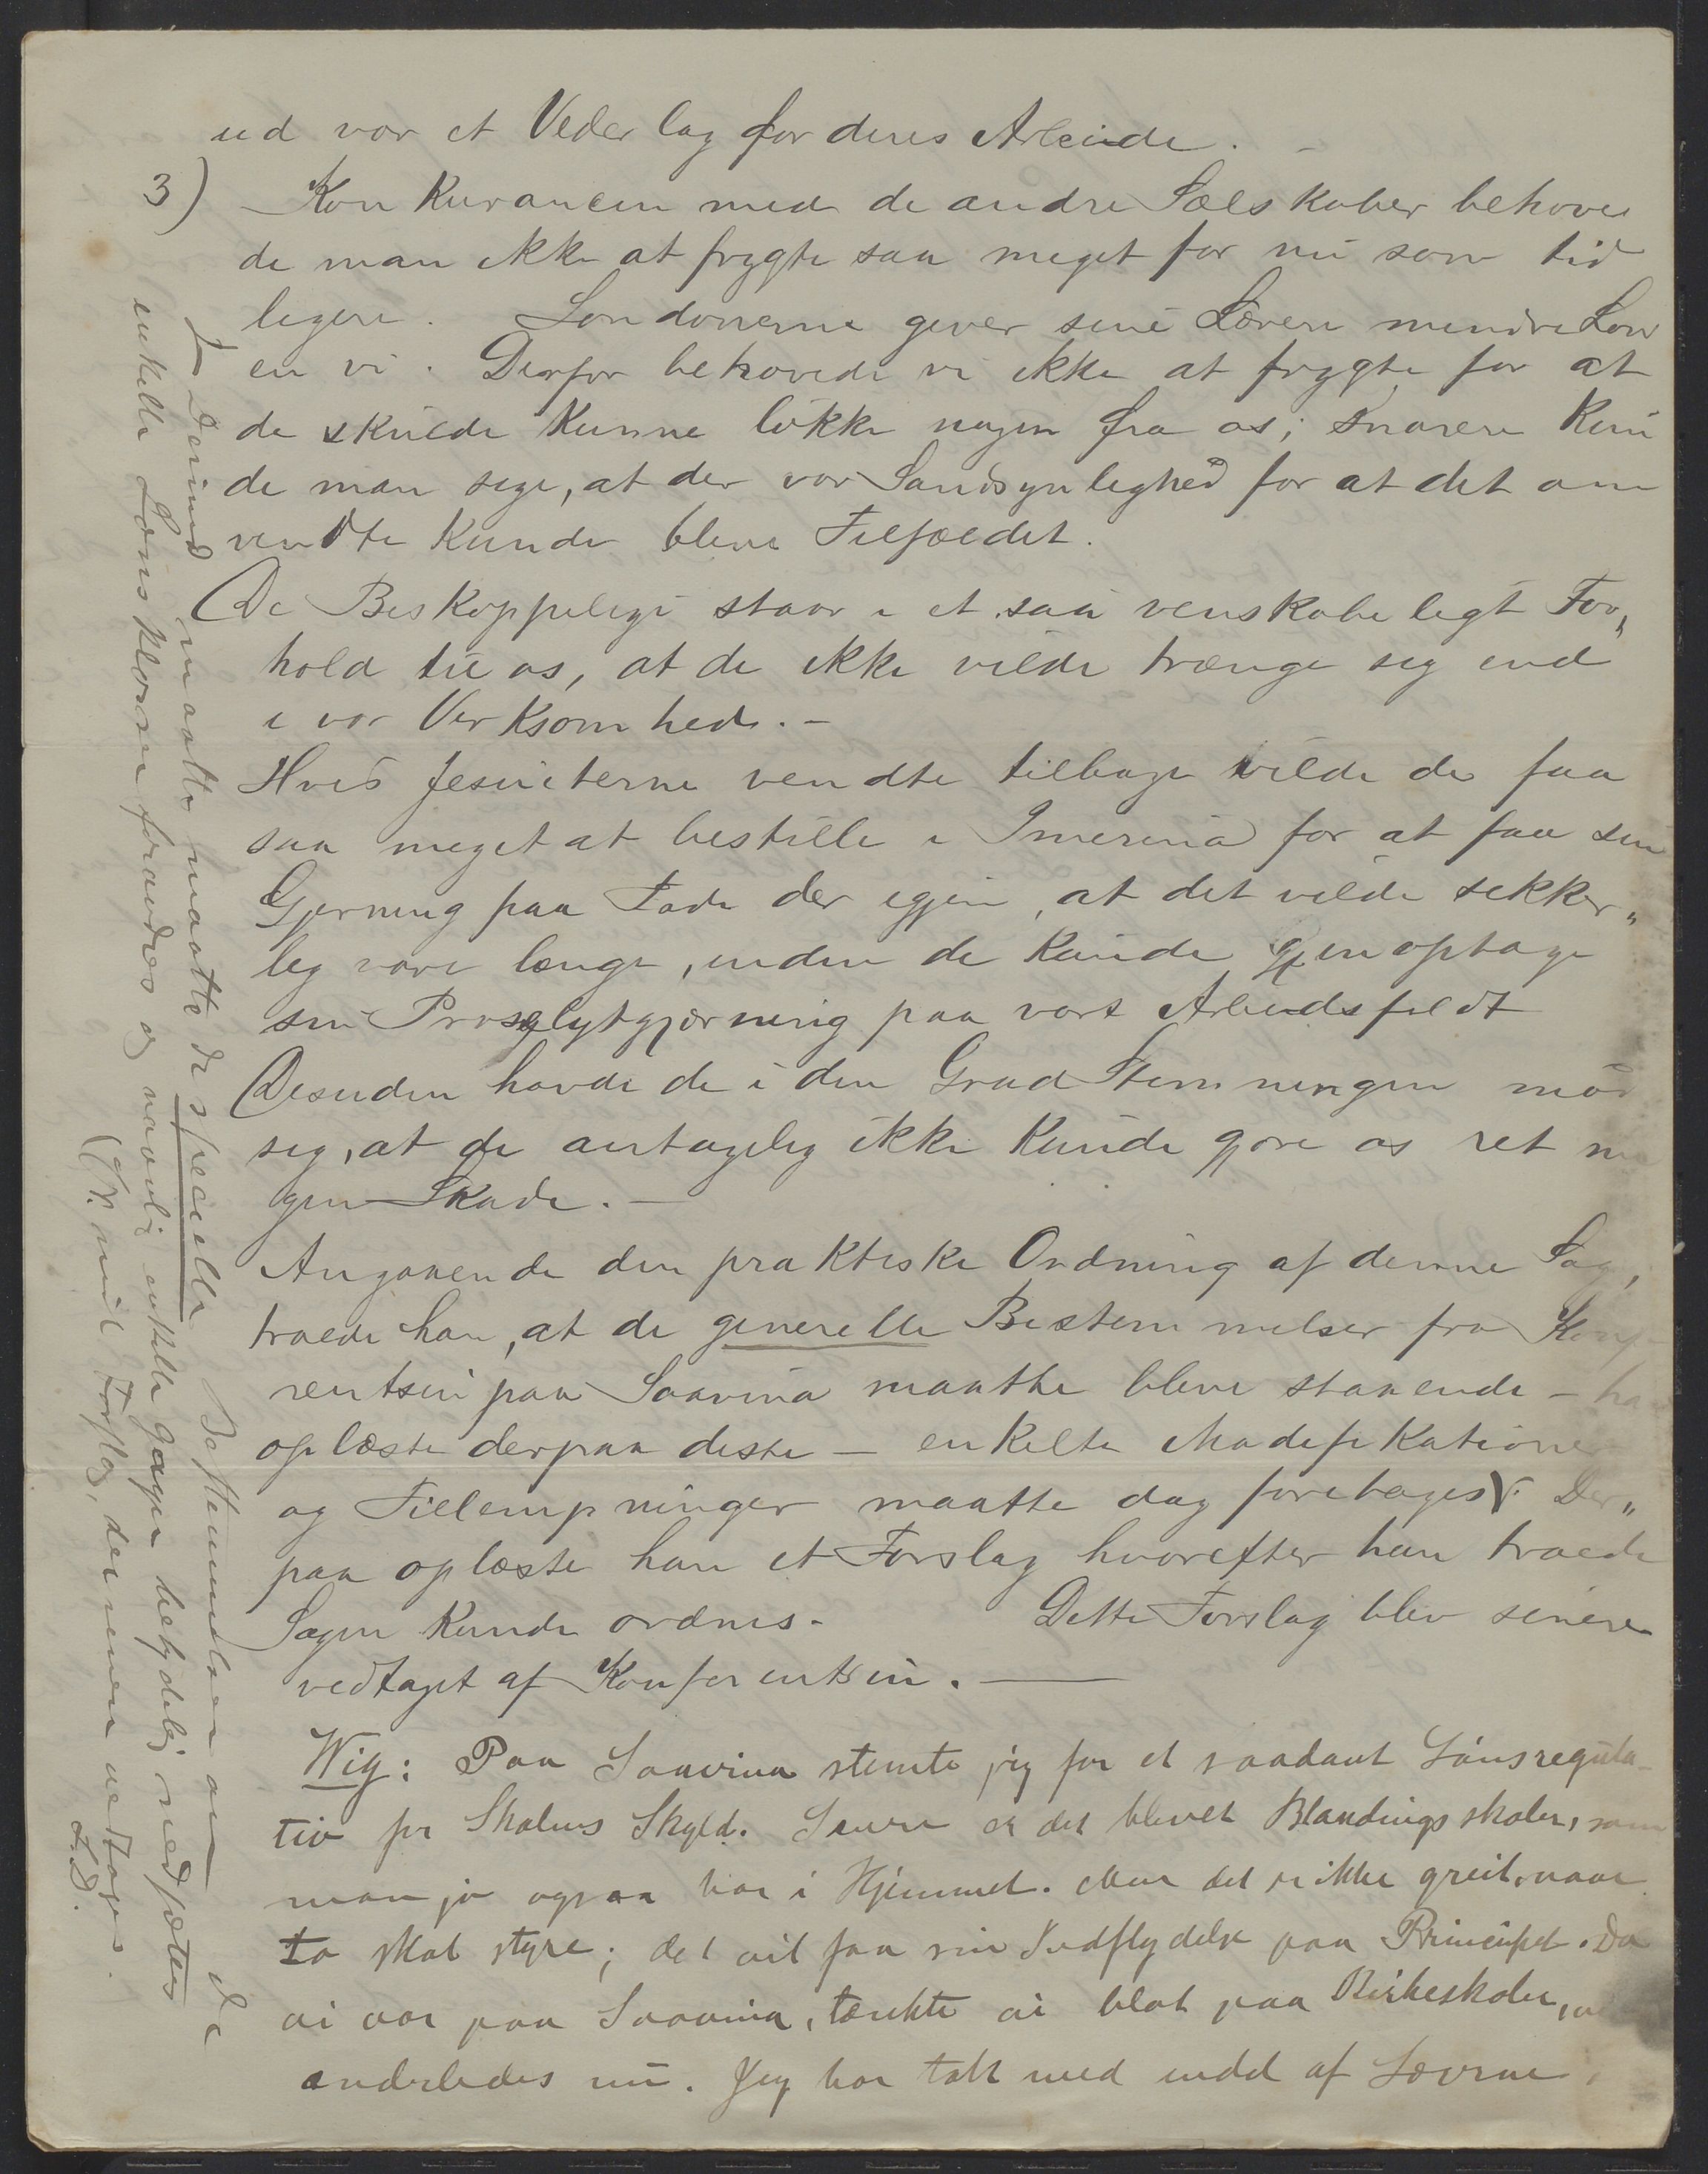 ud var et Vederlag for deres Arbeide. –
3) Konkurancen med de andre Sælskaber behøve
de man ikke at frygte saa meget for nu som tid
ligere. Londonerne giver sine Lærere mindre Løn
en vi. Derfor behøvede vi ikke at frygte for at
de skulde kunne lokke nogen fra os; snarere kun
de man sige, at der var Sandsynlighed for at det om
vendte kunde blive Tilfældet.
De Biskoppelige staar i et saa venskabeligt For„
hold til os, at de ikke vilde trænge sig ind
i vor Virksomhed. –
Hvis Jesuiterne vendte tilbage vilde de faa
saa meget at bestille i Imerina for at faa sin
Gjerning paa Fode der igjen, at det vilde sikker„
lig vare længe, inden de kunde gjenoptage
sin Proselytgjærning paa vort Arbeidsfeldt
Desuden havde de i den Grad Stemningen mod
seg, at de antagelig ikke kunde gjøre os ret me
gen Skade. –
Angaaende den praktiske Ordning af denne Sag,
troede han, at de generelle Bestemmelser fra Konfe
rentsen paa Soavina maatte blive staaende – han
oplæste derpaa disse – enkelte Modifikationer
og Tillempninger maatte dog foretages. Der„
paa oplæste han et Forslag hvorefter han troede
Sagen kunde ordnes. Dette Forslag blev senere
vedtaget af Konferentsen. —
Wig: Paa Soavina stemte jeg for et saadant Lønsregula-
tiv for Skolens Skyld. Senere er det blevet Blandingsskoler, som
man jo ogsaa har i Hjemmet. Men det er ikke greit, naar
to skal styre; det vil faa sin Indflydelse paa Principet. Da
vi var paa Soavina, tænkte vi blot paa Kirkeskoler,
anderledes nu. Jeg har talt med endel af Lærerne.
Derimod maatte de specielle Bestemmelser om de
enkelte Lønsklasser forandres og navnlig enkelte Gager betydelig nedsættes
(cfr. mit Forslag, der senere vedtoges.
L.D.